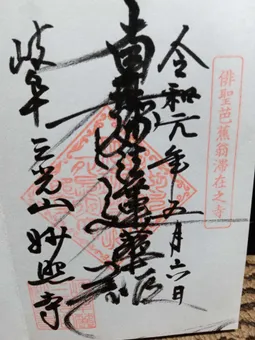 俳聖芭蕉翁滞在之寺
令和元年五月六日
南無妙法蓮華経
岐阜三光山妙照寺